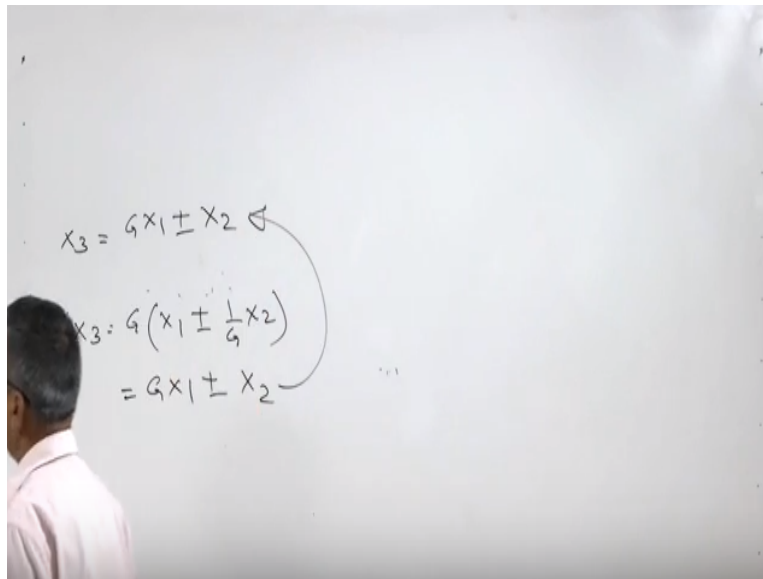 X3 = GX1 ± X2
X3 = G(X1 ± 1/G X2)
= GX1 ± X2